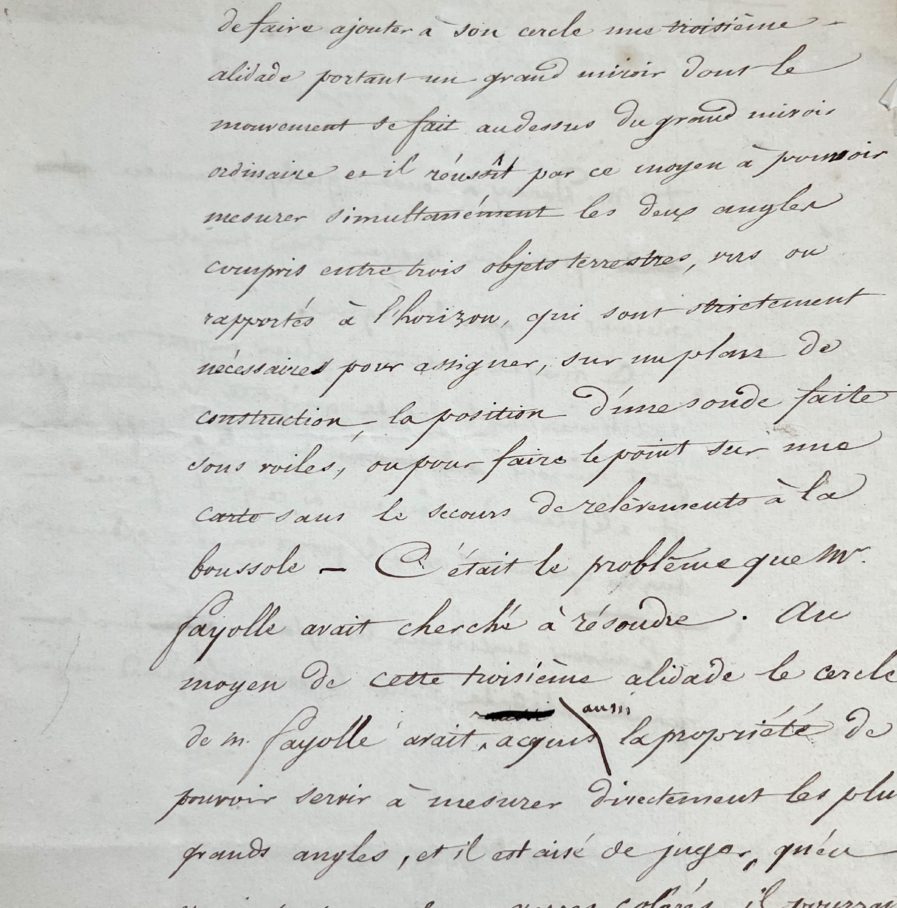 de faire ajouter à son cercle une troisième
alidade portant un grand miroir dont le
mouvement se fait audessus du grand miroir
ordinaire et il réussit par ce moyen à pouvoir
mesurer simultanément les deux angles
compris entre trois objets terrestres, vus ou
rapportés à l'horizon, qui sont strictement
nécessaires pour assigner, sur un plan de
construction la position d'une sonde faite
sous voiles, ou pour faire le point sur une
carte sans le secours de relèvements à la
boussole — C'était le problème que Mr.
Fayolle avait cherché à résoudre. Au
moyen de cette troisième alidade le cercle
de m. Fayolle avait acquis aussi la propriété de
pouvoir servir à mesurer directement les plu
grands angles, et il est aisé de juger, qu'en
verres colorés, il pourrai